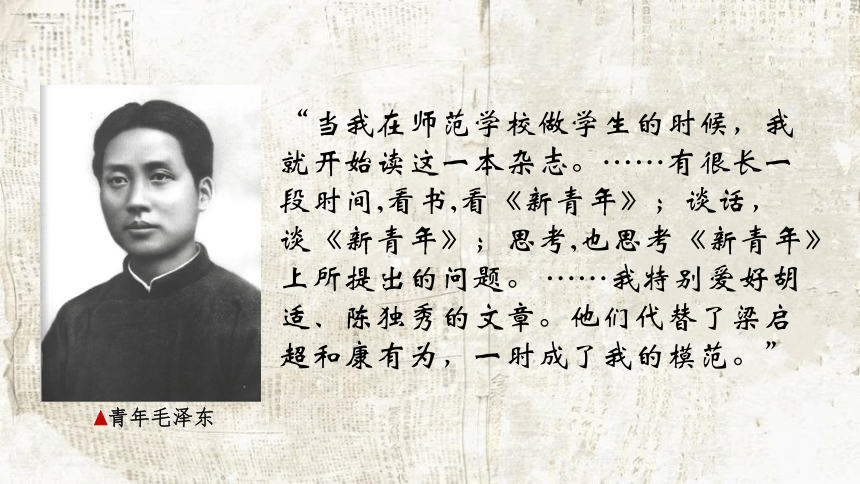 “当我在师范学校做学生的时候，我
就开始读这一本杂志。……有很长一
段时间,看书,看《新青年》；谈话，
谈《新青年》；思考,也思考《新青年》
上所提出的问题。……我特别爱好胡
适、陈独秀的文章。他们代替了梁启
超和康有为，一时成了我的模范。”
▲青年毛泽东